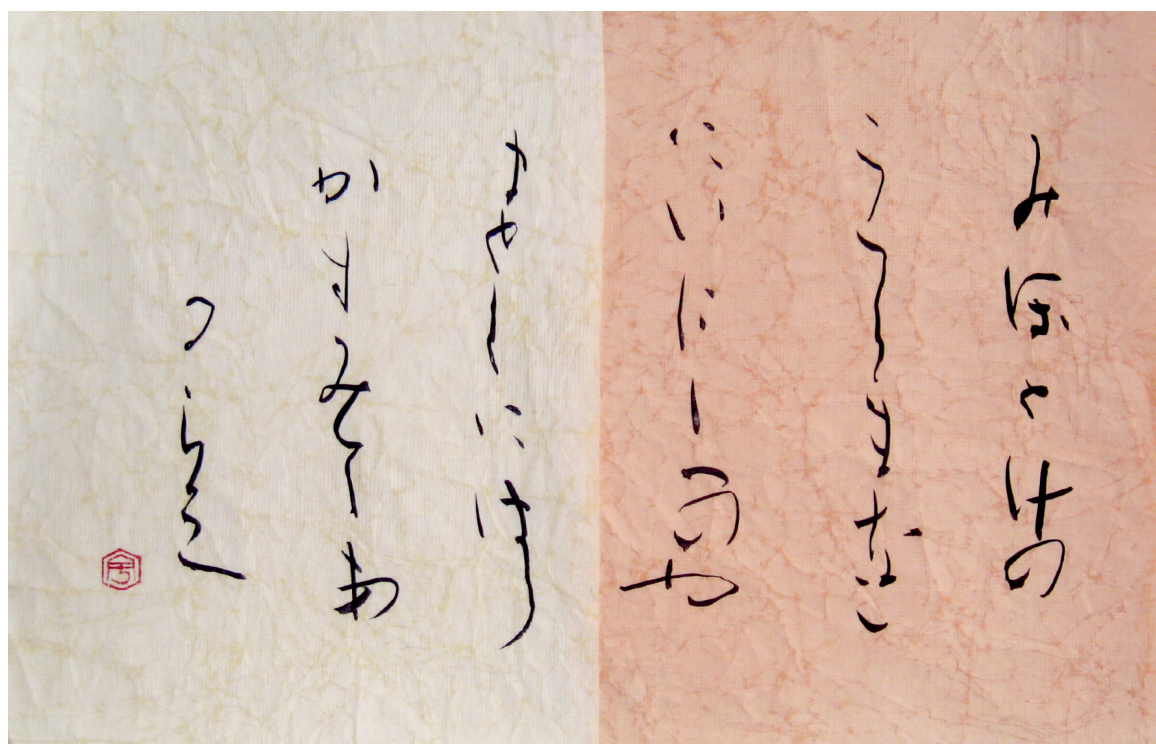 みほとけの
うつらまなこ
にいにしへのや
まとくにはら
かすみてあ
るらし